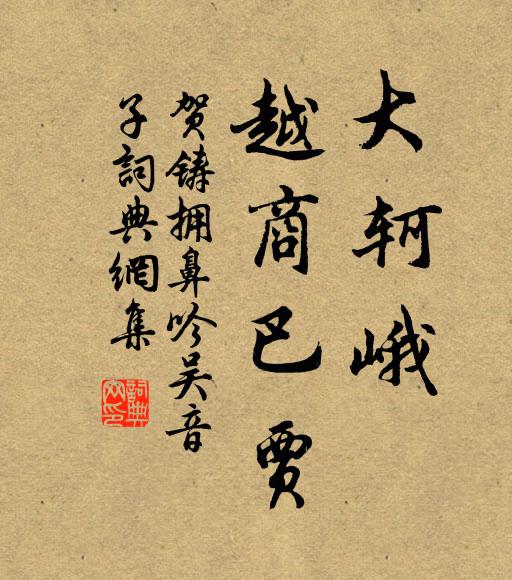 大轲峨
越商巴贾
贺铸拥鼻吟吴音
子詞典網集
詞典
网印